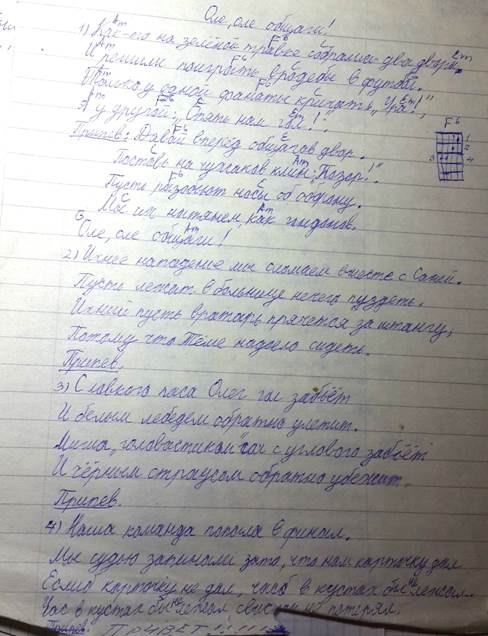 Оле, оле общаги!
1) Как-то на зелёной травке собрались два двора.
И решили поиграть вроде бы в футбол.
Только у одной фанаты кричать, "Ура!",
А у другой: "Опять нам гол!".
Припев: Давай вперёд общагов двор.
Поставь на чужаков клин; Позор!"
Пусть разобьют носы об
Мы их натянем, как гандонов.
Оле, оле общаги!
2) Ихнее нападение мы сломаем вместе с Саней.
Пусть лежат в больнице нечего пиздеть.
Ихний пусть вратарь прячется за штангу,
Потому что Тёме надоело сидеть.
Припев.
3) С лавкого паса Олег гол забьёт
И белым лебедем обратно улетит.
Миша, "головастиком" гол с углового забьёт
И чёрным страусом обратно убежит.
Припев.
4) Наша команда попала в финал.
Мы судью запинали зато, что нам карточку дал
Еслиб карточку не дал, часб в кустах бы не лежал.
Час в кустах бы не лежал свисток не потерял.
Припев. ПРИВЕТ!!!!!
F6